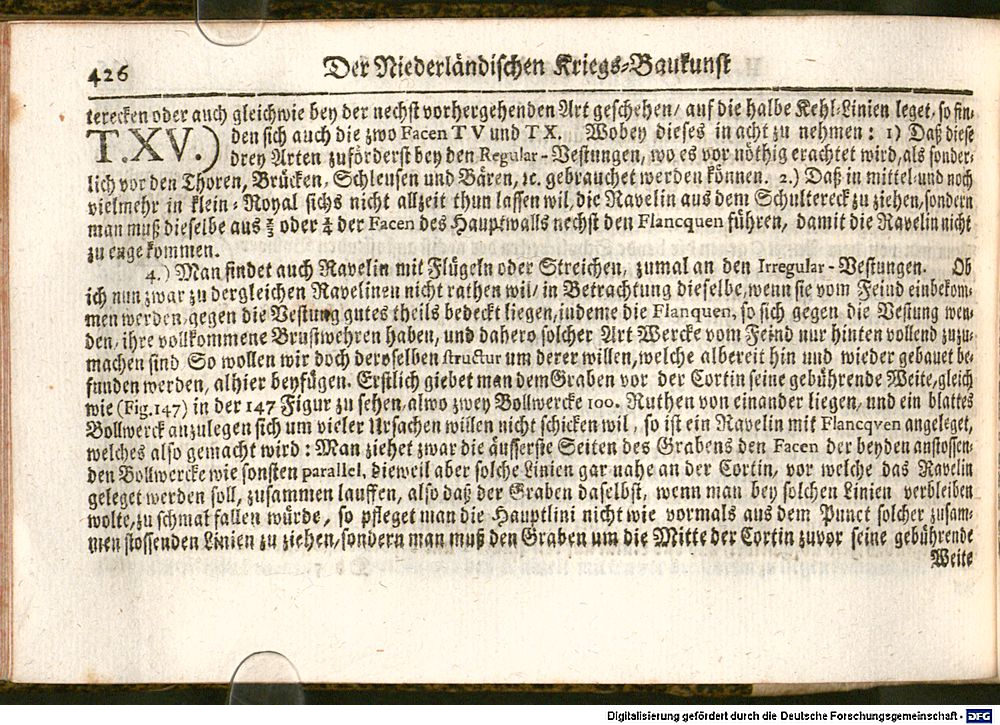 426 Der Niederländischen Kriegs-Baukunst
terecken oder auch gleichwie bey der nechst vorhergehenden Art geschehen/ auf die halbe Kehl-Linien leget, so fin-
T.XV.) den sich auch die zwo Facen T V und T X. Wobey dieses in acht zu nehmen: 1) Daß diese
drey Arten zuförderst bey den Regular-Vestungen, wo es vor nöthig erachtet wird, als sonder-
lich vor den Thoren, Brücken, Schleusen und Bären, ꝛc. gebrauchet werden können. 2.) Daß in mittel- und noch
vielmehr in klein-Royal sichs nicht allzeit thun lassen wil, die Ravelin aus dem Schultereck zu ziehen, sondern
man muß dieselbe aus ⅔ oder ¾ der Facen des Hauptwalls nechst den Flancquen führen, damit die Ravelin nicht
zu enge kommen.
4.) Man findet auch Ravelin mit Flügeln oder Streichen, zumal an den Irregular-Vestungen. Ob
ich nun zwar zu dergleichen Ravelinen nicht rathen wil/ in Betrachtung dieselbe, wenn sie vom Feind einbekom-
men werden, gegen die Vestung gutes theils bedeckt liegen, indeme die Flanquen, so sich gegen die Vestung wen-
den, ihre vollkommene Brustwehren haben, und dahero solcher Art Wercke vom Feind nur hinten vollend zuzu-
machen sind So wollen wir doch deroselben structur um derer willen, welche albereit hin und wieder gebauet be-
funden werden, alhier beyfügen. Erstlich giebet man dem Graben vor der Cortin seine gebührende Weite, gleich
wie (Fig. 147) in der 147 Figur zu sehen, alwo zwey Bollwercke 100. Ruthen von einander liegen, und ein blattes
Bollwerck anzulegen sich um vieler Ursachen willen nicht schicken wil, so ist ein Ravelin mit Flancqven angeleget,
welches also gemacht wird: Man ziehet zwar die äusserste Seiten des Grabens den Facen der beyden anstossen-
den Bollwercke wie sonsten parallel, dieweil aber solche Linien gar nahe an der Cortin, vor welche das Ravelin
geleget werden soll, zusammen lauffen, also daß der Graben daselbst, wenn man bey solchen Linien verbleiben
wolte, zu schmal fallen würde, so pfleget man die Hauptlini nicht wie vormals aus dem Punct solcher zusam-
men stossenden Linien zu ziehen, sondern man muß den Graben um die Mitte der Cortin zuvor seine gebührende
Weite
Digitalisierung gefördert durch die Deutsche Forschungsgemeinschaft - DFG